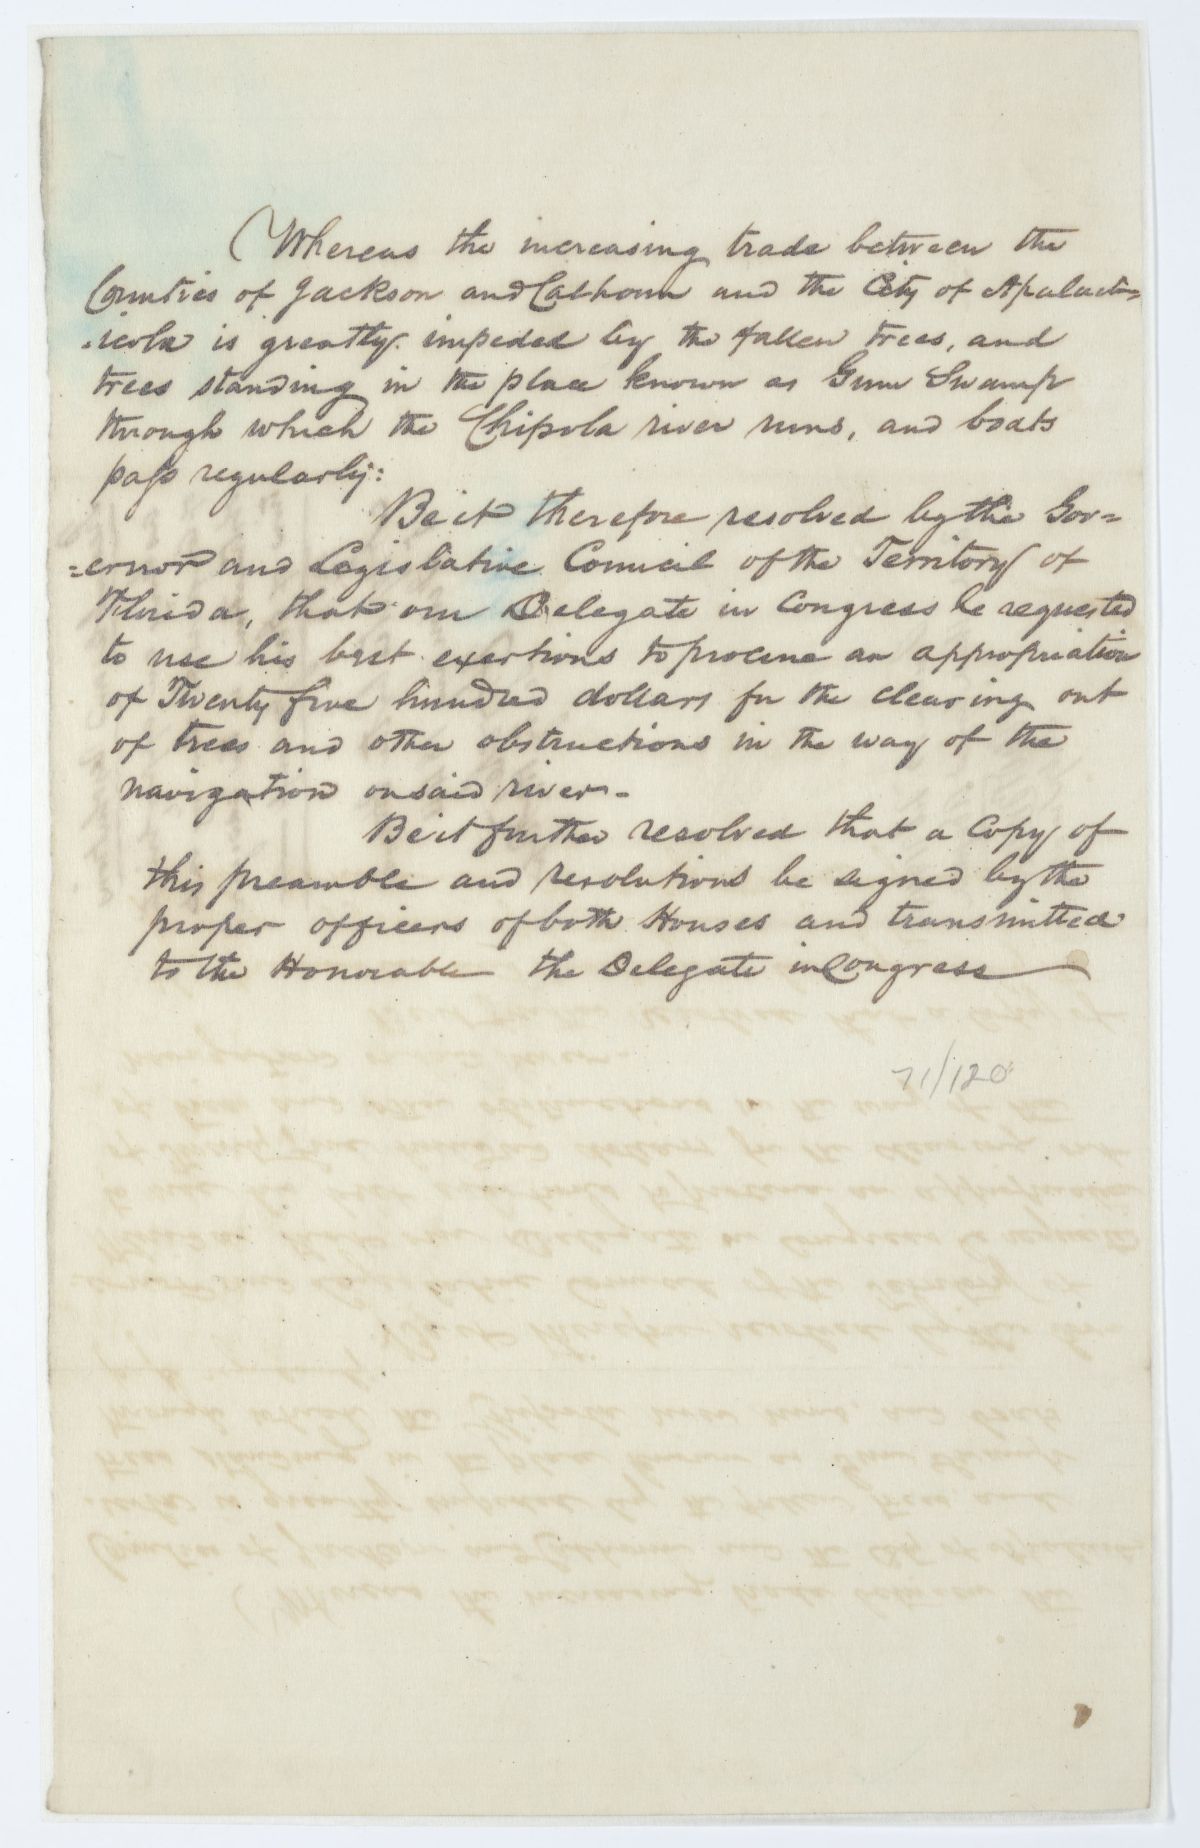 Whereas the increasing trade between the
Counties of Jackson and Calhoun and the City of Apalach=
=icola is greatly impeded by the fallen trees, and
trees standing in the place known as Gum Swamp
through which the Chipola river runs, and boats
pass regularly:
Be it therefore resolved by the Gov=
=ernor and Legislative Council of the Territory of
Florida, that our Delegate in Congress be requested
to use his best exertions to procure an appropriation
of Twenty five hundred dollars for the clearing out
of trees and other obstructions in the way of the
navigation on said river.-
Be it further resolved that a Copy of
this preamble and resolutions be signed by the
proper officers of both Houses and transmitted
to the Honorable the Delegate in Congress
71/120